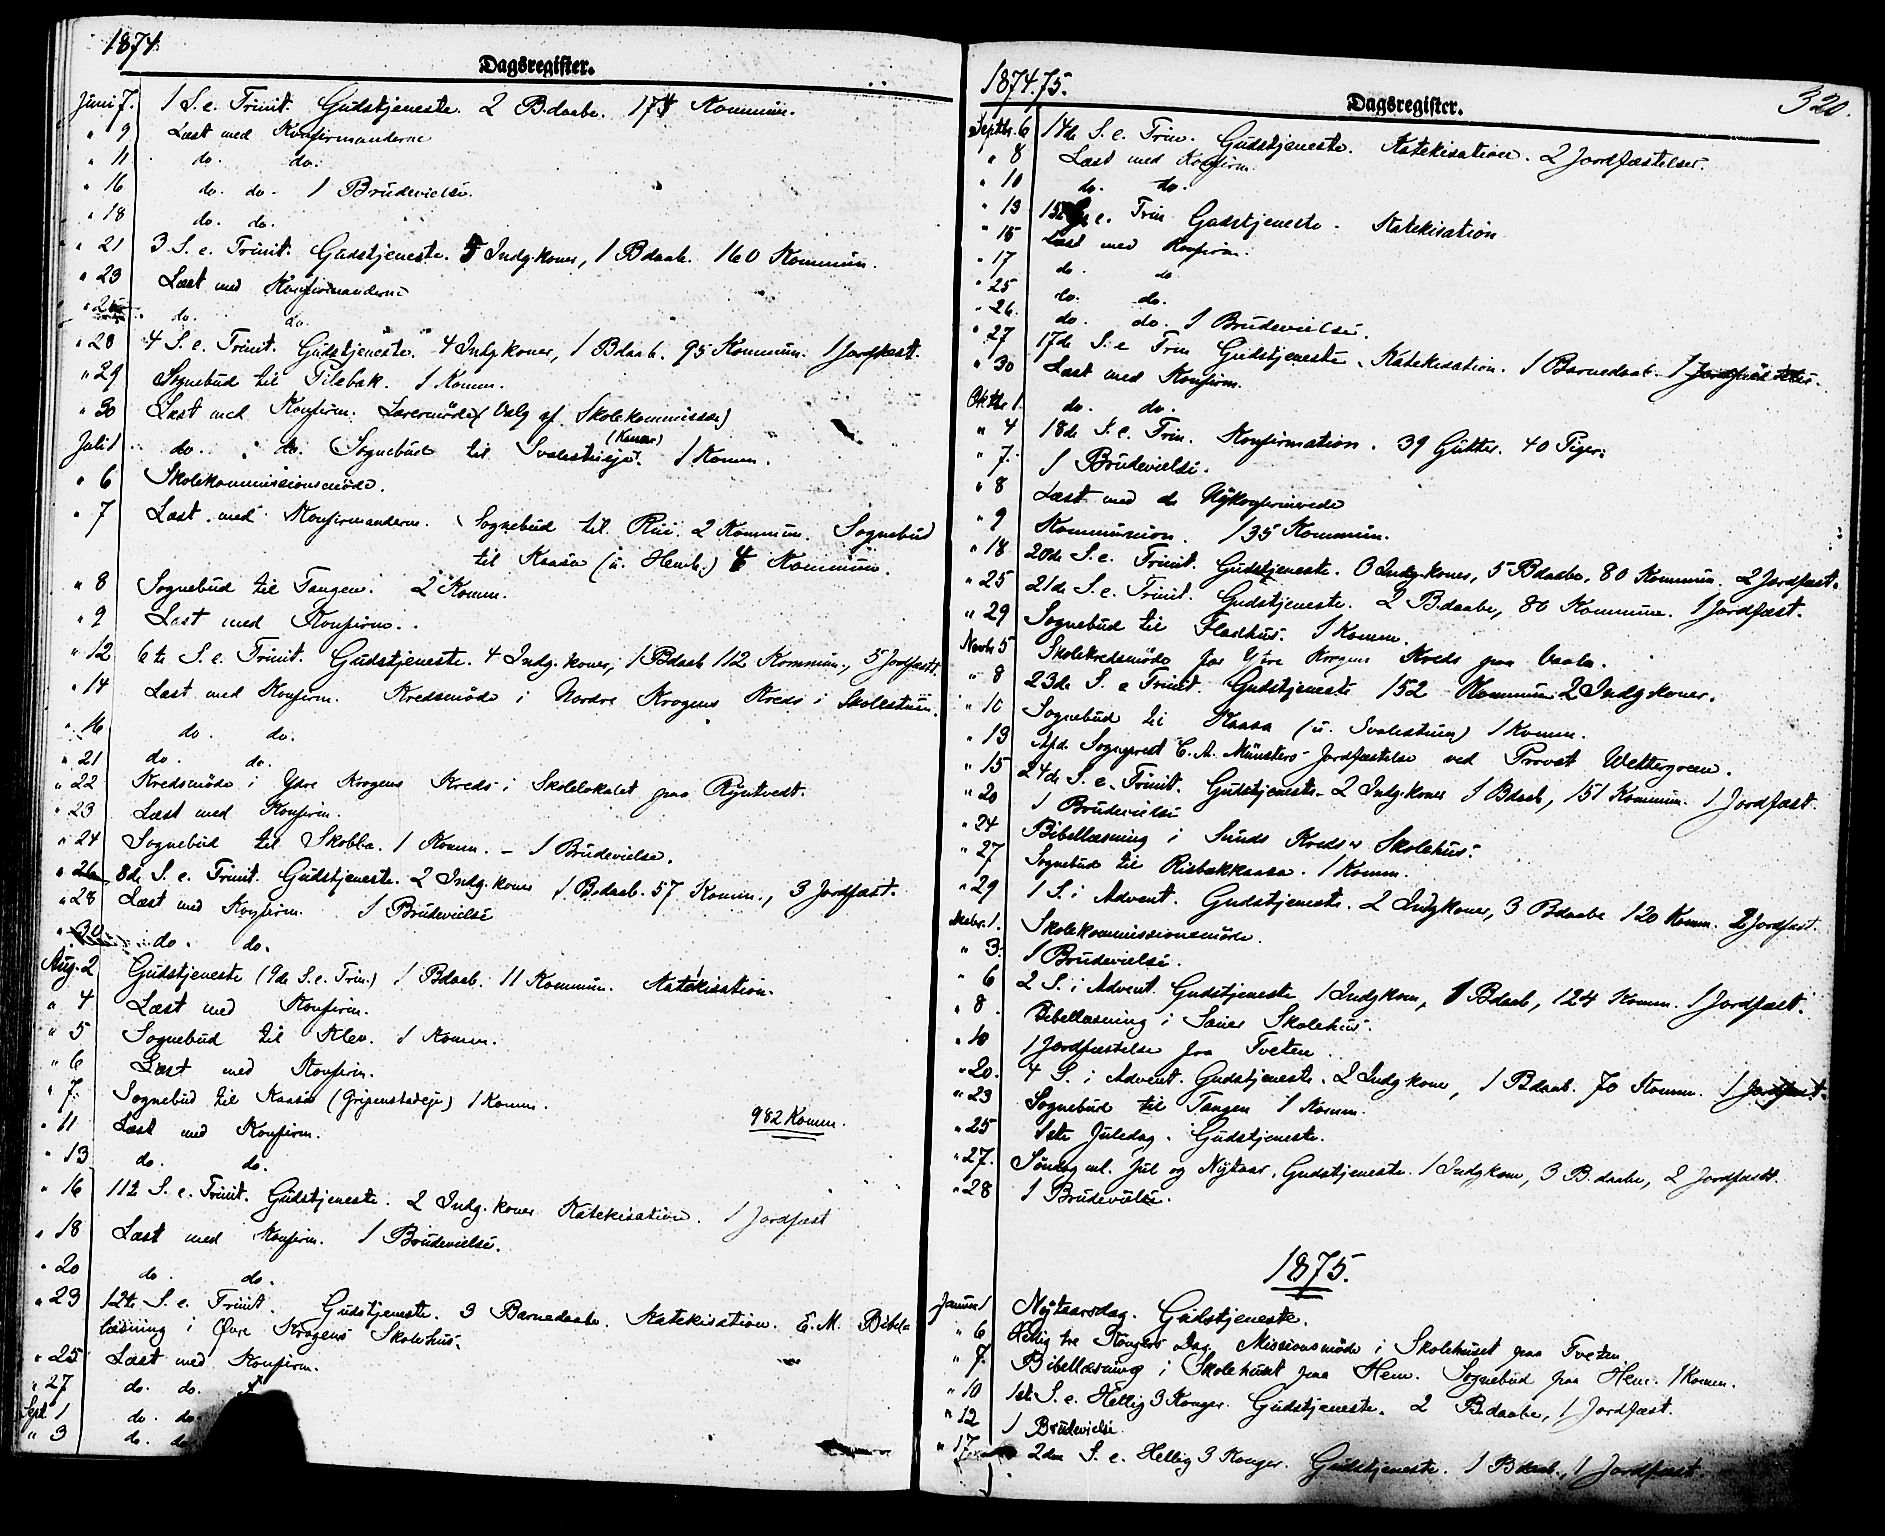 1874.
Dagsregister.
Juni 7. 1 S. e. Trinit. Gudstjeneste. 2 B.daabe. 174 Kommun.
" 9 Læst med Konfirmanderne
" 11 do. do.
" 16 do. do. 1 Brudevielse.
" 18 do. do.
" 21 3 S. e. Trinit. Gudstjeneste. 5 Indg.koner, 1 Bdaab. 160 Kommun.
" 23 Læst med Konfirmanderne
" 25 do. do.
" 28 4 S. e. Trinit. Gudstjeneste. 4 Indg.koner, 1 Bdaab. 95 Kommun. 1 Jordfæst.
" 29 Sognebud til Pilebak. 1 Komm.
" 30 Læst med Konfirm. Lærermøde (Valg af Skolekommissær)
Juli 1 do. do. Sognebud til 1 Komm.
" 6 Skolekommissionsmøde.
" 7 Læst med Konfirmanderne. Sognebud til Rii. 2 Kommun. Sognebud
til Kaasa (u. Henb.) 4 Kommun.
" 8 Sognebud til Tangen. 2 Komm.
" 9 Læst med Konfirm.
" 12 6te S. e. Trinit. Gudstjeneste. 4 Indg.koner, 1 Bdaab 112 Kommun., 5 Jordfæst.
" 14 Læst med Konfirm. Kredsmøde i Nordre Krogens Kreds i Skolestuen.
" 16 do. do.
" 21 do. do.
" 22 Kredsmøde i Ydre Krogens Kreds i Skolelokalet paa
" 23 Læst med Konfirm.
" 24 Sognebud til Skobba. 1 Komm. – 1 Brudevielse.
" 26 8de S. e. Trinit. Gudstjeneste. 2 Indg.koner 1 B.daab. 57 Komm., 3 Jordfæst.
" 28 Læst med Konfirm. 1 Brudevielse
" 30 do. do.
Aug. 2 Gudstjeneste (9de S. e. Trin.) 1 Bdaab. 11 Kommun. Katekisation.
" 4 Læst med Konfirm.
" 5 Sognebud til Klev. 1 Komm.
" 6 Læst med Konfirm.
" 7. Sognebud til Kaasa (Gripenstadeje) 1 Komm.
982 Komm.
" 11 Læst med Konfirm.
" 13 do. do.
" 16 11te S. e. Trinit. Gudstjeneste. 2 Indg.koner Katekisation. 1 Jordfæst
" 18 Læst med Konfirm. 1 Brudevielse.
" 20 do. do.
" 23 12te S. e. Trinit. Gudstjeneste. 3 Barnedaabe. Katekisation. E.M. Bibel
læsning i Øvre Krogens Skolehus.
" 25 Læst med Konfirm.
" 27 do. do.
Sept 1 do. do.
" 3 do. do
1874.75.
Dagsregister.
320.
Septbr. 6 14de S. e. Trin. Gudstjeneste. Katekisation. 2 Jordfæstelser.
" 8 Læst med Konfirm.
" 10 do. do.
" 13 15de S. e. Trin Gudstjeneste. Katekisation
" 15 Læst med Konfirm.
" 17 do. do
" 25 do. do.
" 26. do. do. 1 Brudevielse.
" 27 17de S. e Trin Gudstjeneste. Katekisation. 1 Barnedaab. 1 Jordfæstelse.
" 30 Læst med Konfirm.
Oktbr 1 do. do.
" 4 18de S. e. Trin. Konfirmation. 39 Gutter. 40 Piger.
" 7. 1 Brudevielse.
" 8 Læst med de Nykonfirmerede
" 9 Kommunion. 135 Kommun.
" 18 20de S. e. Trinit. Gudstjeneste. 0 Indg.koner, 5 Bdaabe, 80 Kommun. 2 Jordfæst.
" 25 21de S. e. Trinit. Gudstjeneste. 2 B.daabe, 80 Kommun. 1 Jordfæst.
" 29 Sognebud til Fladhus. 1 Komm.
Novbr 5 Skolekredsmøde for Ydre Krogens Kreds paa Vaala.
" 8 23de S. e Trinit. Gudstjeneste 152 Kommun 2 Indg.koner.
" 10 Sognebud til Kaasa (u. Svalestuen) 1 Komm.
" 13 Afd. Sogneprest C. A. Münsters Jordfæstelse ved Provst Wettergreen.
" 15 24de S. e. Trinit. Gudstjeneste. 2 Indg.koner 1 Bdaab, 151 Kommun. 1 Jordfæst.
" 20 1 Brudevielse
" 24 Bibellæsning i Sunds Kreds's Skolehus.
" 27 Sognebud til Risbakkaasa. 1 Komm.
" 29 1 S. i Advent. Gudstjeneste. 2 Indgkoner, 3 Bdaabe 120 Komm. 2 Jordfæst.
Decbr. 1. Skolekommissionsmøde.
" 3. 1 Brudevielse.
" 6 2 S. i Advent. Gudstjeneste 1 Indgkone, 1 Bdaab, 124 Komm. 1 Jordfæst.
" 8. Bibellæsning i Skolehus.
" 10 1 Jordfæstelse fra Tveten
" 20. 4 S. i Advent. Gudstjeneste. 2 Indgkoner, 1 Bdaab. 70 Komm. 1 Jordfæst.
" 23 Sognebud til Tangen 1 Komm.
" 25 1ste Juledag. Gudstjeneste.
" 27. Søndag ml. Jul og Nytaar. Gudstjeneste. 1 Indgkone, 3 B.daabe, 2 Jordfæst.
" 28 1 Brudevielse.
1875.
Januar 1 Nytaarsdag. Gudstjeneste.
" 6 Hellig tre Kongers Dag. Missionsmøde i Skolehuset paa Tveten
" 7. Bibellæsning i Skolehuset paa Hem. Sognebud paa Hem. 1 Komm.
" 10 1ste S. e. Hellig 3 Konger. Gudstjeneste. 2 B.daabe, 1 Jordfæst.
" 12 1 Brudevielse.
" 17 2den S. e. Hellig 3 Konger. Gudstjeneste. 1 Bdaab., 1 Jordfæst.